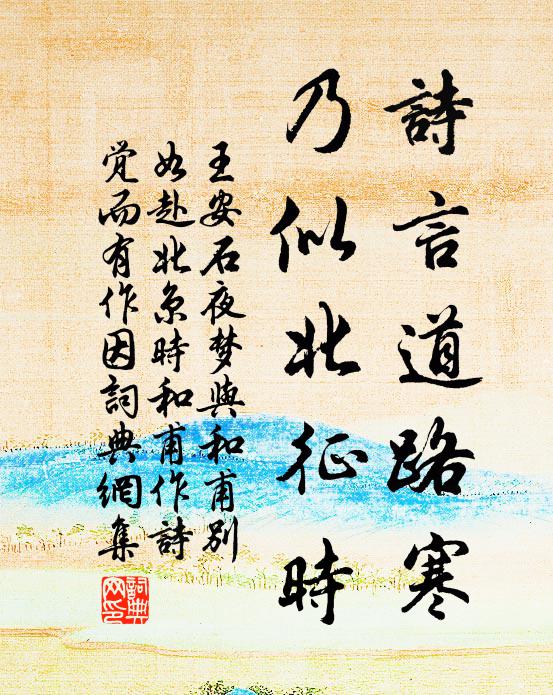 詩言道路寒
乃似北征時
王安石夜梦與和甫別
如赴北京時和甫作詩
覺而有作因詞典網集
詞典
网印